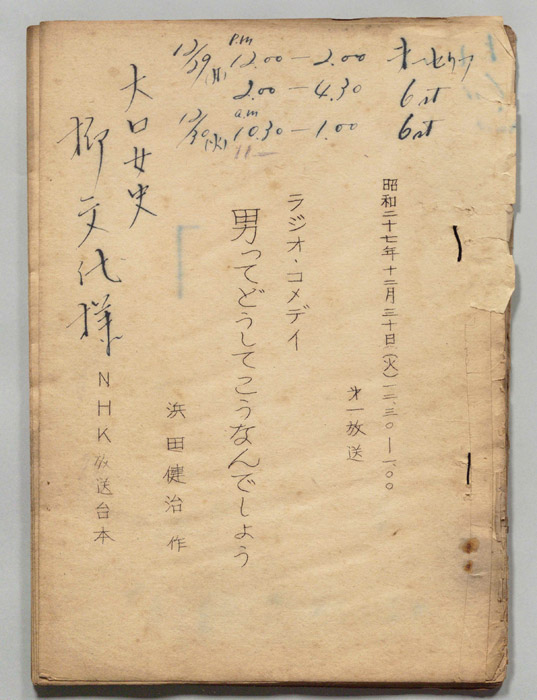 12/29(月) P.m 12.00 — 2.00
2.00 — 4.30 6st
12/30(火) a.m 10.30 — 1.00 6st
11 —
昭和二十七年十二月三十日(火)一二、三〇—一、〇〇
才一放送
ラジオ・コメデイ
男ってどうしてこうなんでしょう
浜田健治 作
大口女史
柳文代様
NHK放送台本